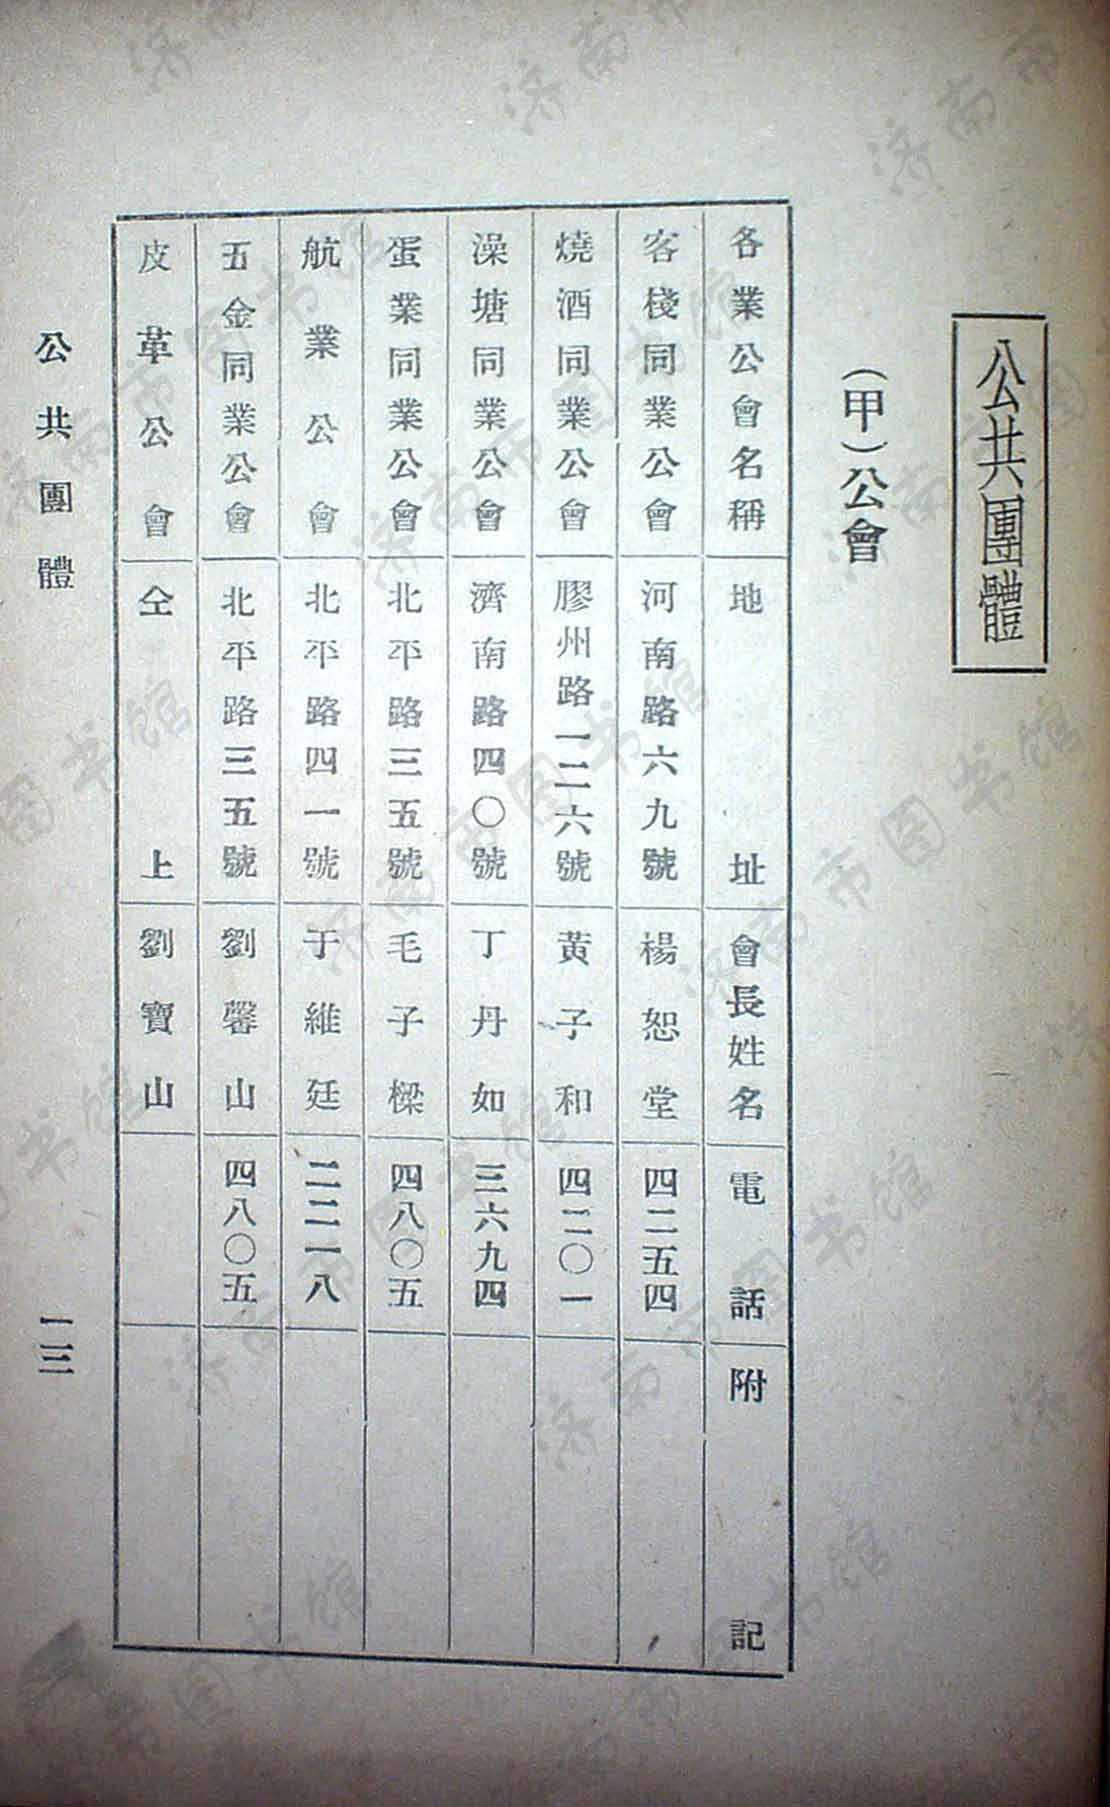 公共團體
（甲）公會
各業公會名稱 地址 會長姓名 電話 附記
客棧同業公會 河南路六九號 楊恕堂 四二五四
燒酒同業公會 膠州路一二六號 黃子和 四二〇一
澡塘同業公會 濟南路四〇號 丁丹如 三六九四
蛋業同業公會 北平路三五號 毛子樑 四八〇五
航業公會 北平路四一號 于維廷 二二一八
五金同業公會 北平路三五號 劉馨山 四八〇五
皮革公會 仝上 劉寶山
公共團體 一二三
济南市图书馆